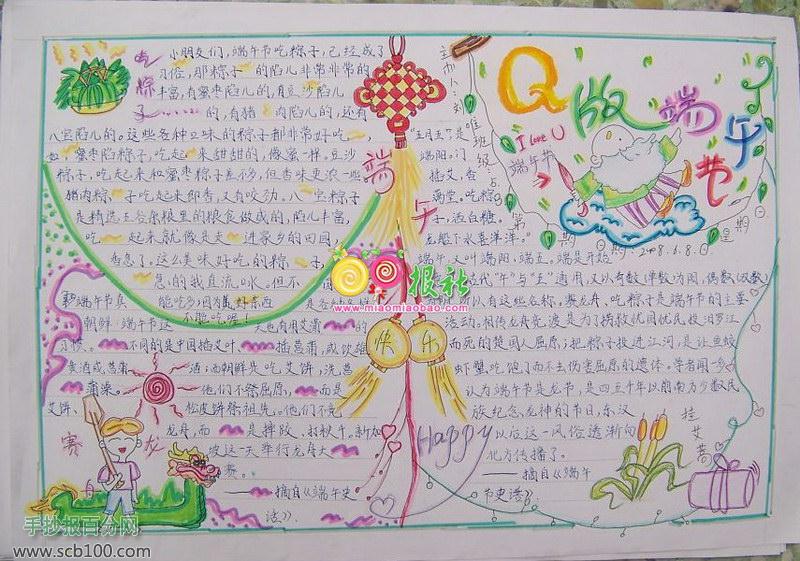 小朋友们,端午节吃粽子,已经成了
习俗,那粽子的陷儿非常非常的
丰富,有蜜枣陷儿的,有豆沙陷儿
的,有猪肉陷儿的,还有
八宝陷儿的。这些各种口味的粽子都非常好吃
蜜枣陷粽子,吃起来甜甜的,像蜜一样,豆沙
粽子,吃起来和蜜枣粽子差不多,但香味更浓一些
猪肉粽子吃起来即香,又有咬劲。八宝粽子
是精选五谷杂粮里的粮食做成的,陷儿丰富,
吃起来就像是走进家乡的田园,
香急了。这么美味好吃的粽子,
急的我直流口水,但不
能吃多,因为
不能吃喔!
吃
粽
子
朝鲜:端午节这天也有相艾蒲的
习惯。不同的是中国插艾叶、插菖蒲,或饮雄
黄酒或菖蒲酒;而朝鲜是吃艾饼、洗菖
蒲澡。他们不祭屈原,而是
艾饼、松皮饼祭祖先。他们不赛
龙舟,而是摔跤、打秋千,新加
坡这一天举行龙舟大
赛。
——摘自《端午史
话》
赛龙
端
午
快乐
Happy
Q版端午节
I love U
端午节
"五月五"是
端阳,门
插艾,香
满堂。吃粽
子,洒白糖。
龙船下水喜洋洋。
2008.6.8.
星期日
端午,又叫端阳、端五。端是开始
古代"午"与"五"通用,又以奇数(单数)为阳,偶数(双数)
所以有这些名称。赛龙舟、吃粽子是端午节的主要
活动。相传龙舟竞渡是为了拯救忧国忧民投汨罗江
而死的楚国人屈原;把粽子投进江河,是让鱼蛟
虾蟹吃饱了而不去伤害屈原的遗体。学者闻一多
认为端午节是龙节,是四五千年以前南方少数民
族纪念龙神的节日,东汉
以后这一风俗逐渐向
北方传播了。
——摘自《端午
节史话》
挂
艾
菖
报社
www.miaomiaobao.com
手抄报百分网
www.scb100.com